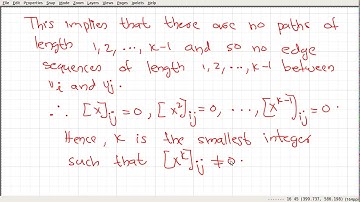 File Edit View Options Properties Snap Mode Zoom Layers Grids Help
This implies that there are no paths of
length 1, 2, ..., k-1 and so no edge
sequences of length 1, 2, ..., k-1 between
vi and vj.
∴ [x]ij = 0, [x²]ij = 0, ..., [x^{k-1}]ij = 0.
Hence, k is the smallest integer
such that [x^k]ij ≠ 0.